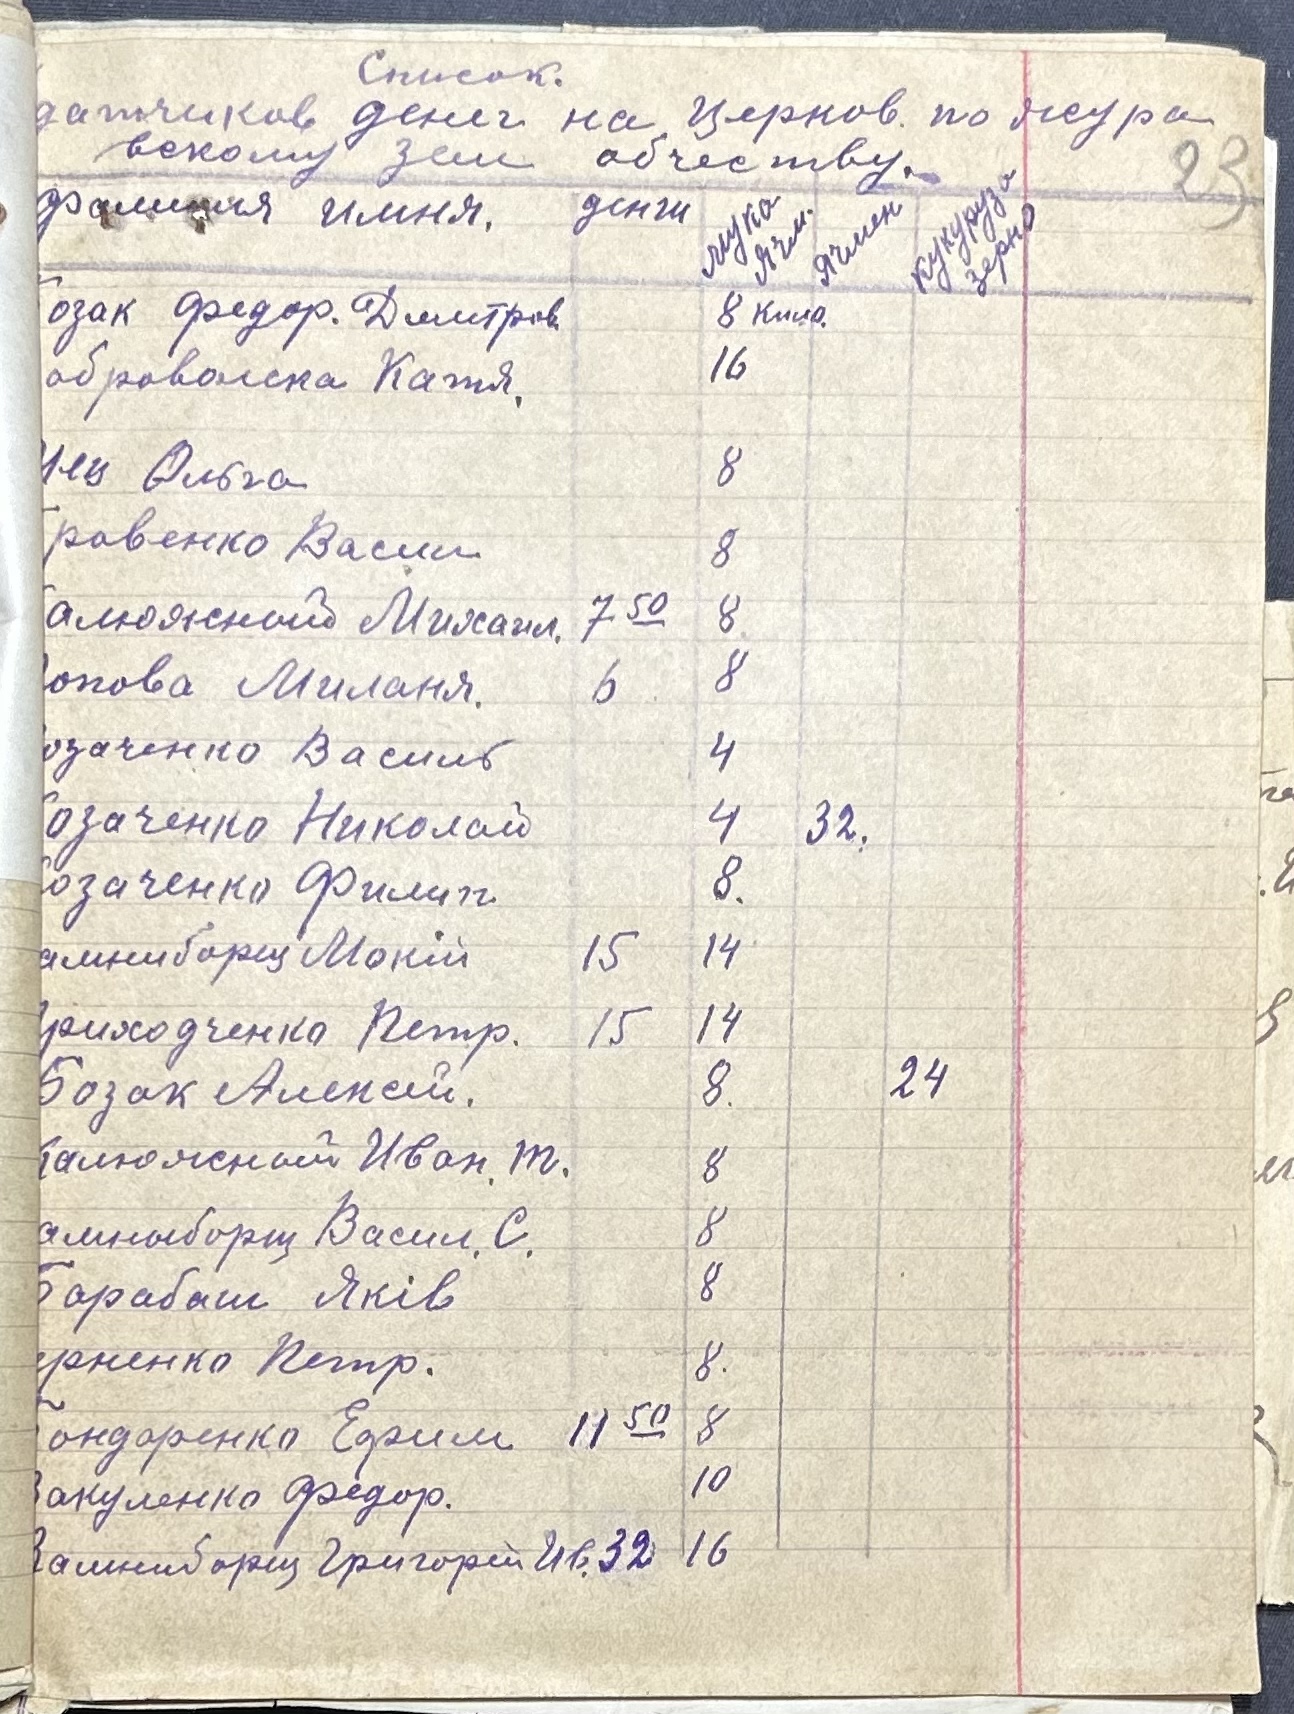 Список.
датчиков денег на Церков. по жура
вскому зем обчеству.
23
фамилия имня. денги мука ячм. Ячмен кукуруза зерно
озак Федор. Дмитров 8 кило.
обровольска Катя. 16
Ольга 8
ровенко Васил 8
алюжный Михаил. 7 50 8
опова Миланя. 6 8
озаченко Василь 4
озаченко Николай 4 32.
озаченко Филип 8.
амниборщ Мокій 15 14
риходченко Петр. 15 14
Бозак Алексей. 8. 24
Калюжный Иван. Т. 8
амныборщ Васил. С. 8
Барабаш Яків 8
ерненко Петр. 8.
ондаренко Ефим 11 50 8
Вакуленко Федор. 10
Камниборщ Григорій Ив. 32 16